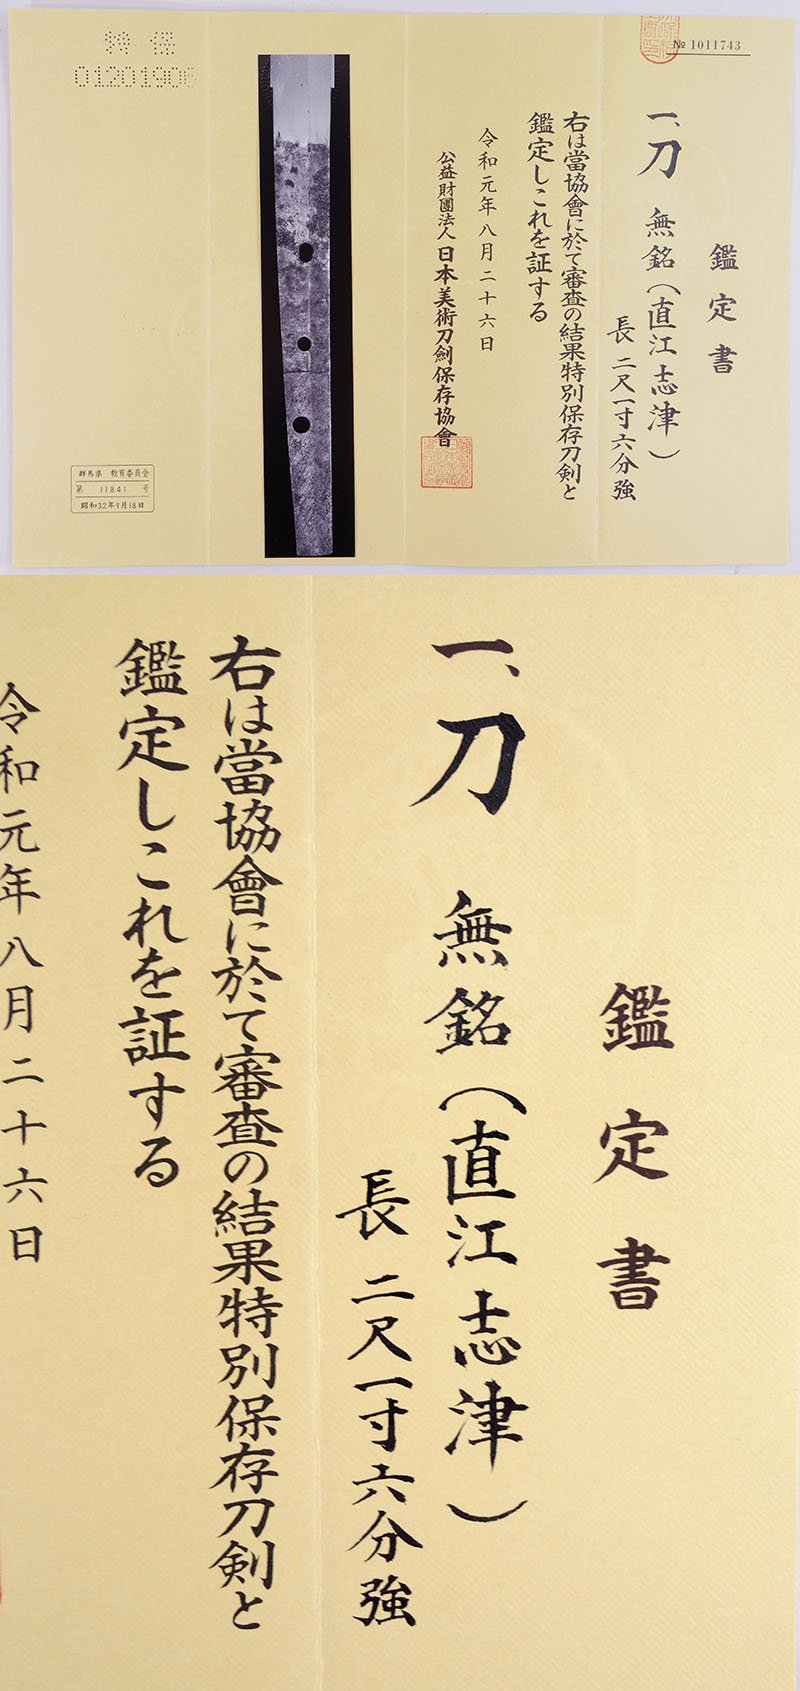 № 1011743
鑑定書
一、刀 無銘(直江志津)
長 二尺一寸六分強
右は當協會に於て審査の結果特別保存刀剣と
鑑定しこれを証する
令和元年八月二十六日
公益財團法人 日本美術刀剣保存協會
特 保
01201906
群馬県 教育委員会
第 11841 号
昭和32年9月18日
鑑定書
一、刀 無銘(直江志津)
長 二尺一寸六分強
右は當協會に於て審査の結果特別保存刀剣と
鑑定しこれを証する
令和元年八月二十六日